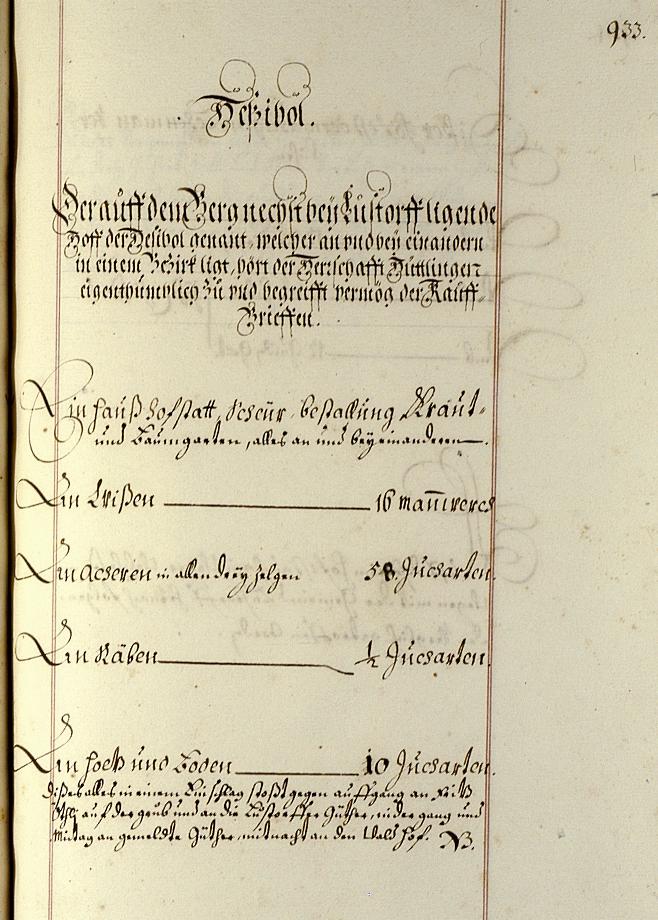 933.
Teßibol.
Der auff dem Berg nechst bey Lustorff ligende
Hoff der Tesibol genant, welcher an vnd bey einandern
in einem Bezirk ligt, hört der Herrschafft Hüttlingen
eigenthümblich zu vnd begreifft vermög der Kauff-
Brieffen.
Ein hauß hofstatt, scheür, bestallung Kraut-
und Baumgarten, alles an und bey einanderen.
An Wißen 16 Mannwerch
An Ackeren in allen drey Zelgen 58. Jucharten.
An Räben ½ Jucharten.
An holtz und Boden 10 Jucharten.
dißes alles in einem Einschlag stoßt gegen auffgang an
auf der grub und an die Lustorffer Güther, nidergang und
mitag an gemeldte Güther, mitnacht an den Hof. NB.